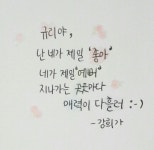 규리야,
난 네가 제일 "좋아"
네가 제일 "예뻐"
지나가는 곳곳마다
매력이 다흘러 :-)
- 강희가